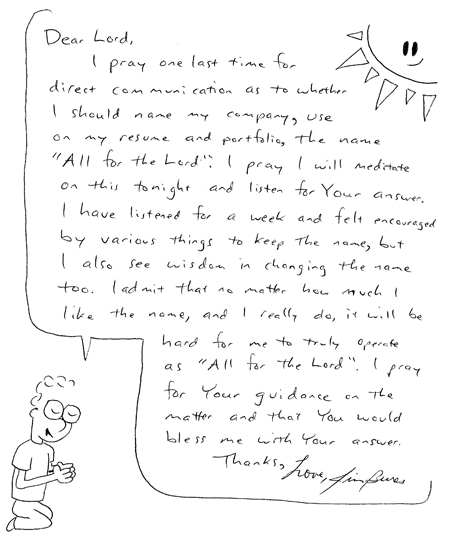 Dear Lord,
I pray one last time for
direct communication as to whether
I should name my company, use
on my resume and portfolio, the name
"All for the Lord". I pray I will meditate
on this tonight and listen for Your answer.
I have listened for a week and felt encouraged
by various things to keep the name, but
I also see wisdom in changing the name
too. I admit that no matter how much I
like the name, and I really do, it will be
hard for me to truly operate
as "All for the Lord". I pray
for Your guidance on the
matter and that You would
bless me with Your answer.
Thanks, Love,